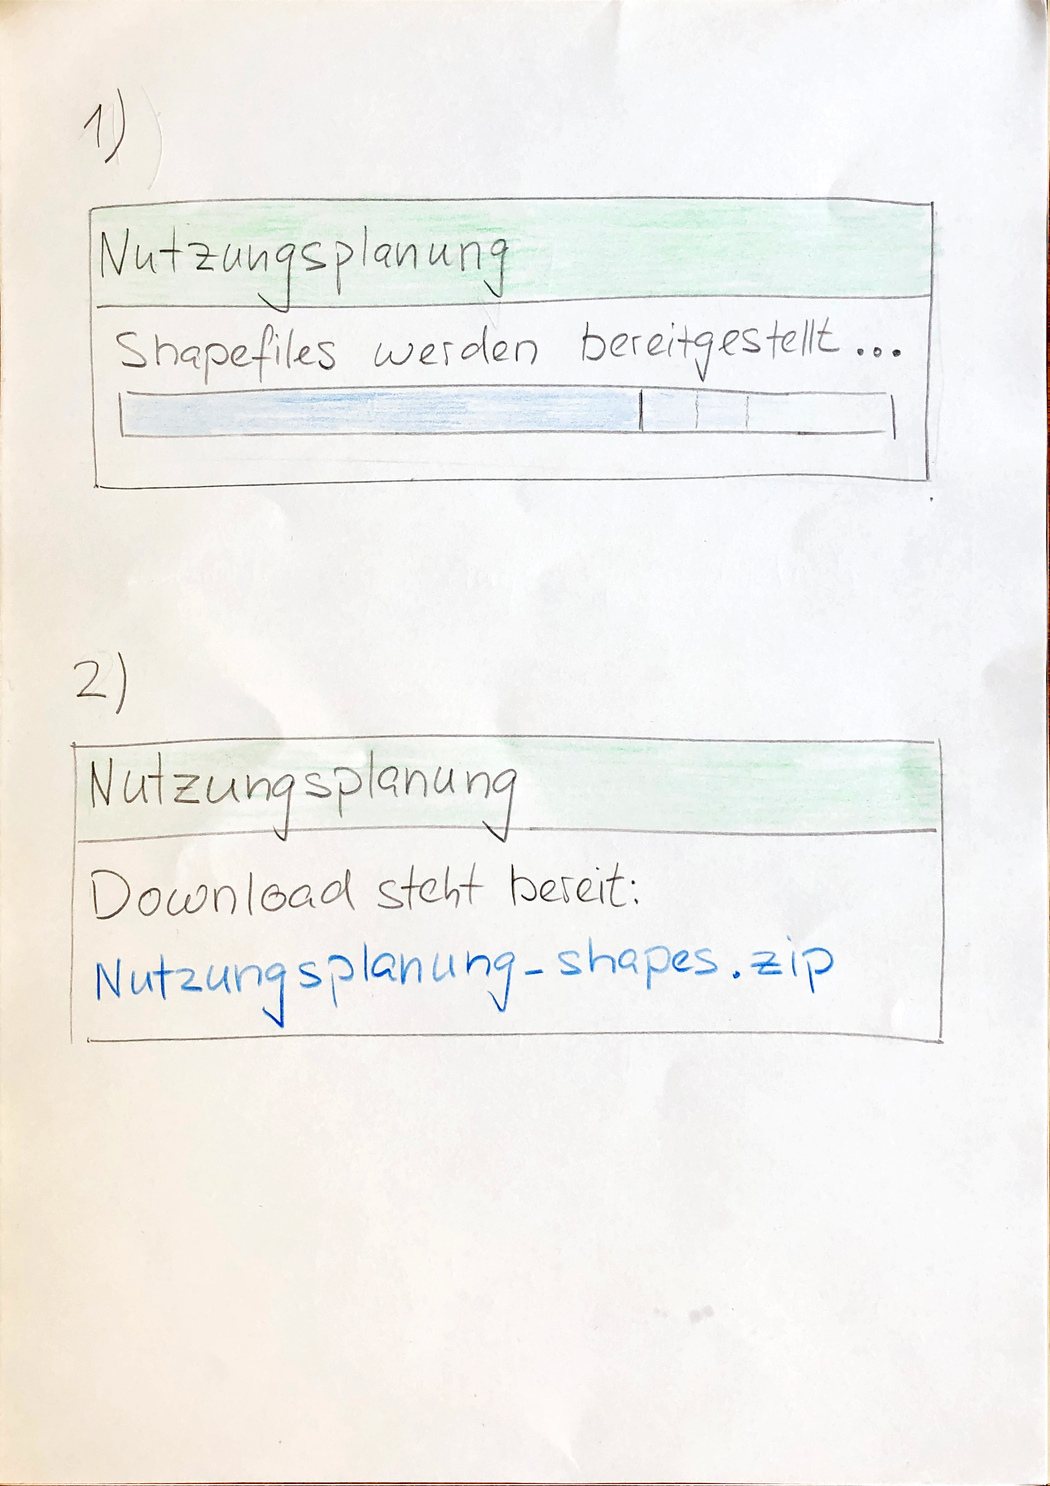 1)
Nutzungsplanung
Shapefiles werden bereitgestellt...
2)
Nutzungsplanung
Download steht bereit:
Nutzungsplanung_shapes.zip